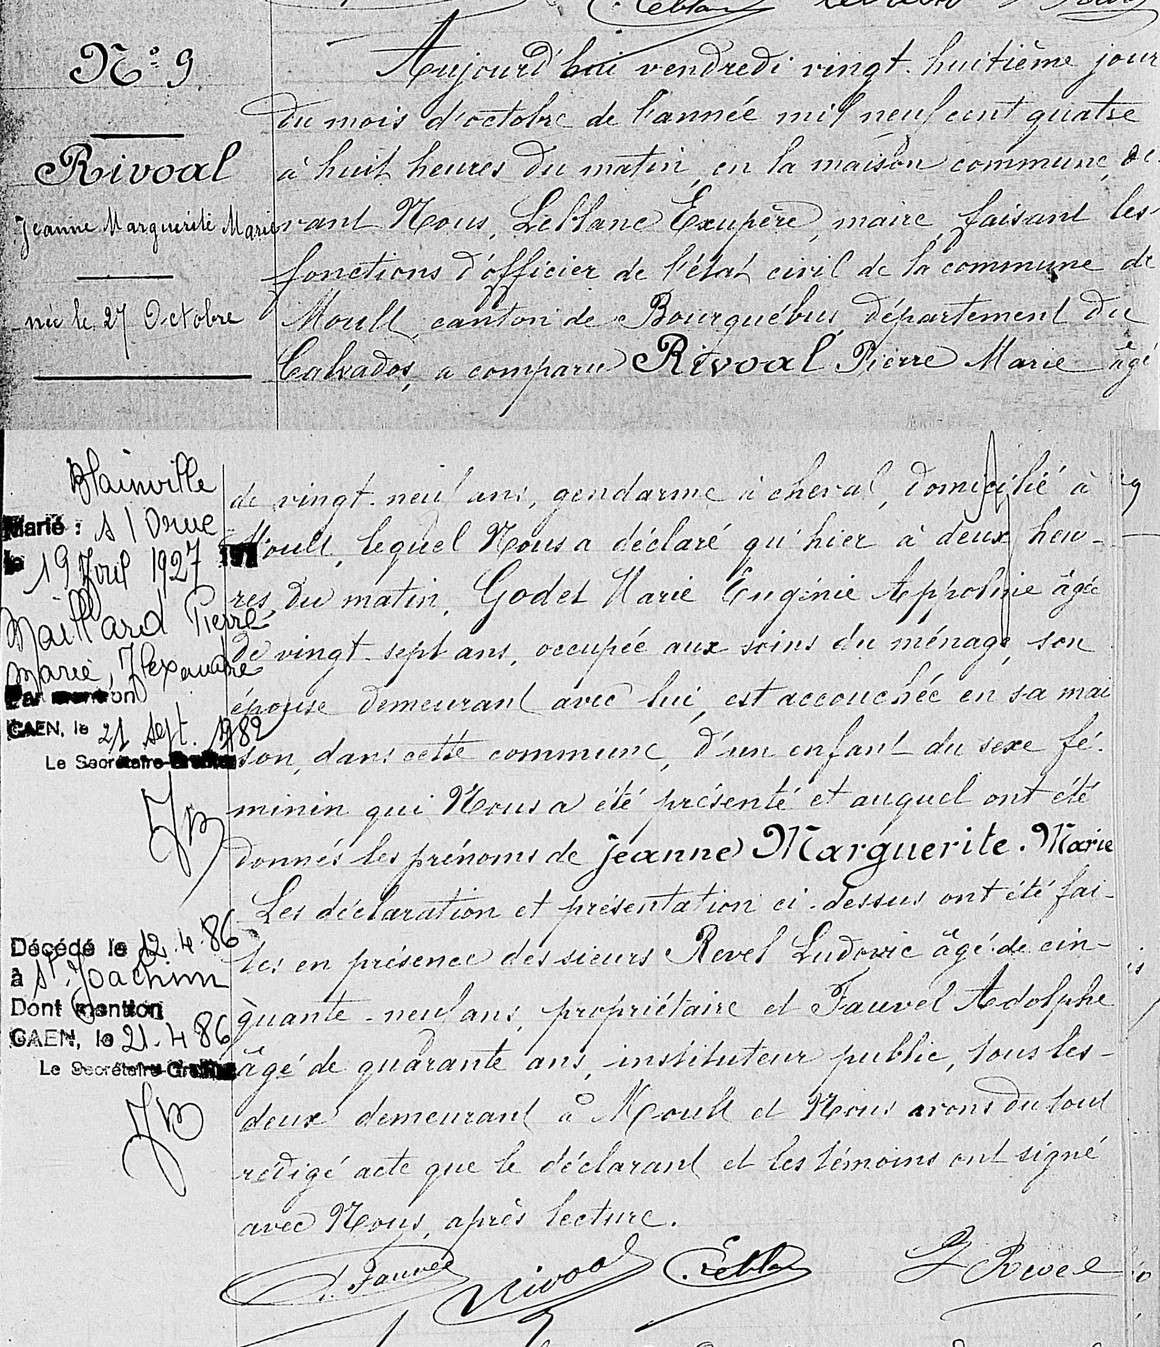 N° 9.
Rivoal
Jeanne Marguerite Marie
née le 27 Octobre
Aujourd'hui vendredi vingt-huitième jour
du mois d'octobre de l'année mil neuf cent quatre
à huit heures du matin, en la maison commune, de-
vant Nous, Leblanc Exupère, maire, faisant les
fonctions d'officier de l'état civil de la commune de
Moult, canton de Bourguébus, département du
Calvados, a comparu Rivoal Pierre Marie âgé
de vingt-neuf ans, gendarme à cheval, domicilié à
Moult, lequel Nous a déclaré qu'hier à deux heu-
res du matin, Godet Marie Eugénie Appoline âgée
de vingt-sept ans, occupée aux soins du ménage, son
épouse demeurant avec lui, est accouchée en sa mai
son, dans cette commune, d'un enfant du sexe fé-
minin qui Nous a été présenté et auquel ont été
donnés les prénoms de Jeanne Marguerite Marie
Les déclaration et présentation ci-dessus ont été fai-
tes en présence des sieurs Revel Ludovic âgé de cin-
quante-neuf ans, propriétaire et Fauvel Adolphe
âgé de quarante ans, instituteur public, tous les-
deux demeurant à Moult et Nous avons du tout
rédigé acte que le déclarant et les témoins ont signé
avec Nous, après lecture.
A. Fauvel Rivoal E. Leblanc L Revel
Blainville
Marié : s/Orne
le 19 Avril 1927
Maillard Pierre
Marie, Alexandre
Par mention
CAEN, le 21 sept. 1982
Le Secrétaire-Greffier
Décédé le 12.4.86
à St Joachim
Dont mention
CAEN, le 21.4.86
Le Secrétaire-Greffier